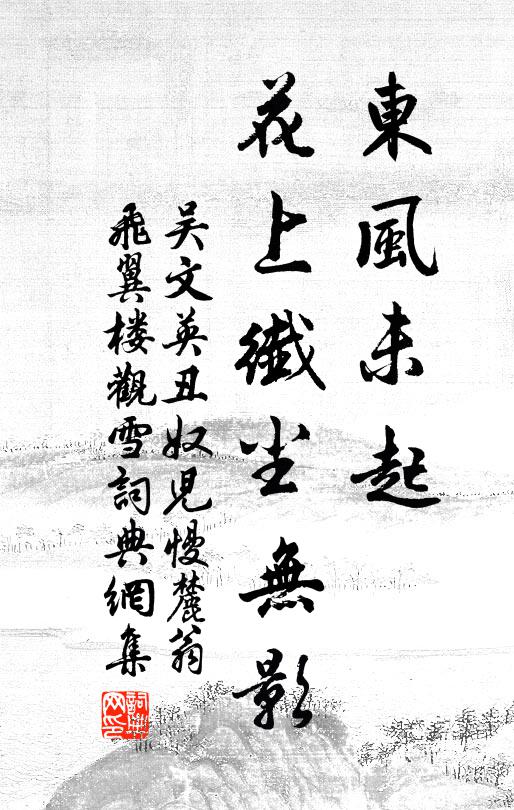 東風未起
花上纖尘無影
吴文英丑奴児慢麓翁
飛翼楼觀雪詞典網集